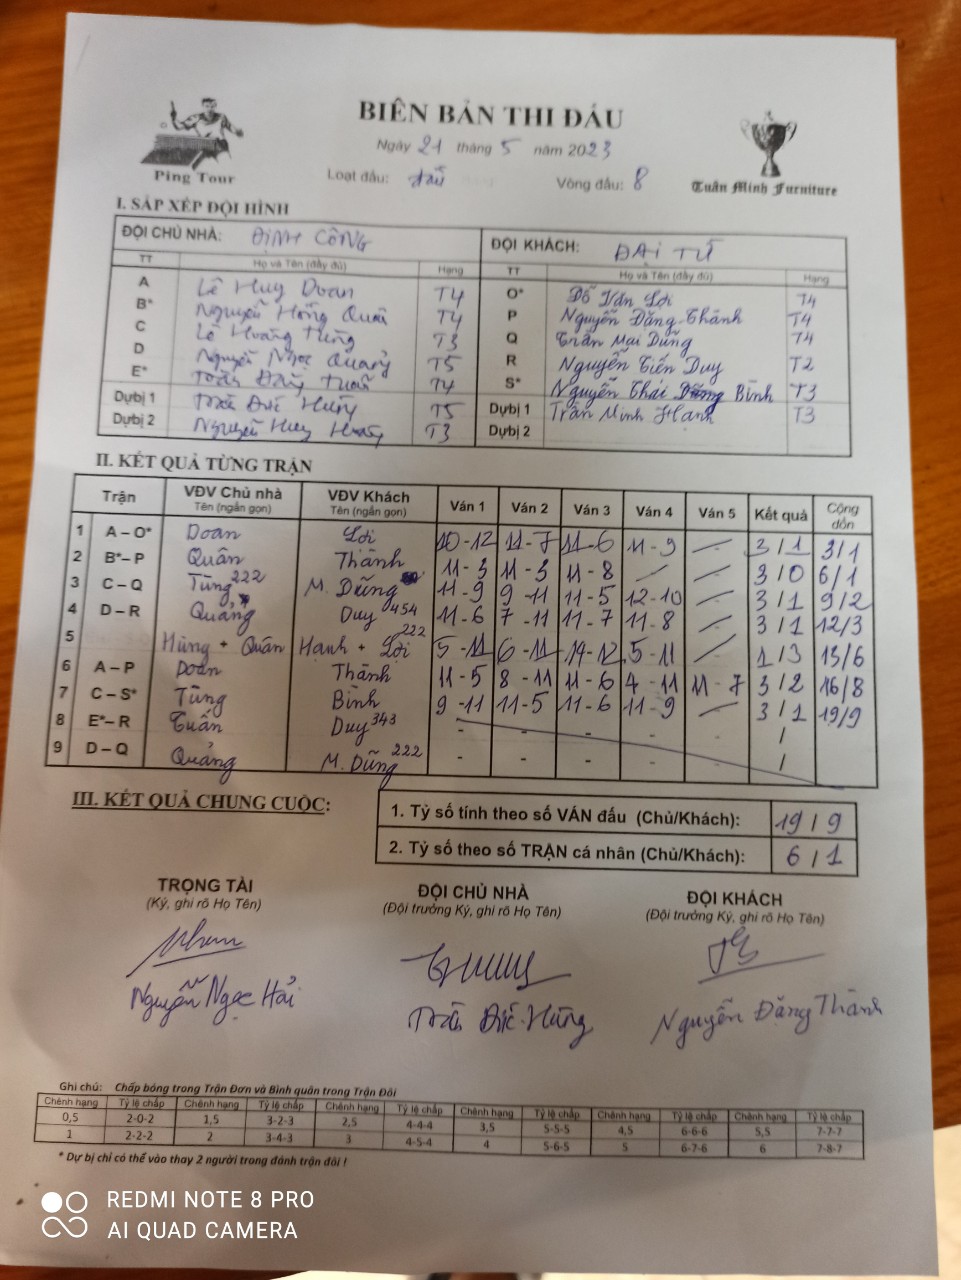 BIÊN BẢN THI ĐẤU
Ngày 21 tháng 5 năm 2023
Ping Tour
Loạt đấu: Vòng đấu: 8
Tuấn Minh Furniture
I. SẮP XẾP ĐỘI HÌNH
ĐỘI CHỦ NHÀ: ĐỊNH CÔNG ĐỘI KHÁCH: ĐẠI TỪ
TT Họ và Tên (đầy đủ) Hạng TT Họ và Tên (đầy đủ) Hạng
A Lê Huy Doan T4 O* Đỗ Văn Lợi T4
B* Nguyễn Hồng Quân T4 P Nguyễn Đăng Thành T4
C Lê Hoàng Tùng T3 Q Trần Mai Dũng T4
D Nguyễn Ngọc Quảng T5 R Nguyễn Tiến Duy T2
E* Tuấn T4 S* Nguyễn Thái Bình T3
Dự bị 1 Trần Đức Hùng T5 Dự bị 1 Trần Minh Hạnh T3
Dự bị 2 Nguyễn Huy Hoàng T3 Dự bị 2
II. KẾT QUẢ TỪNG TRẬN
Trận VĐV Chủ nhà Tên (ngắn gọn) VĐV Khách Tên (ngắn gọn) Ván 1 Ván 2 Ván 3 Ván 4 Ván 5 Kết quả Cộng dồn
1 A – O* Doan Lợi 10-12 11-7 11-6 11-9 — 3/1 3/1
2 B* – P Quân Thành 11-3 11-3 11-8 — — 3/0 6/1
3 C – Q Tùng 222 M. Dũng 11-9 9-11 11-5 12-10 — 3/1 9/2
4 D – R Quảng Duy 454 11-6 7-11 11-7 11-8 — 3/1 12/3
5 Hùng + Quân Hạnh + Lợi 222 5-11 6-11 14-12 5-11 — 1/3 13/6
6 A – P Doan Thành 11-5 8-11 11-6 4-11 11-7 3/2 16/8
7 C – S* Tùng Bình 9-11 11-5 11-6 11-9 — 3/1 19/9
8 E* – R Tuấn Duy 343 - - - - - /
9 D – Q Quảng M. Dũng 222 - - - - - /
III. KẾT QUẢ CHUNG CUỘC:
1. Tỷ số tính theo số VÁN đấu (Chủ/Khách): 19/9
2. Tỷ số theo số TRẬN cá nhân (Chủ/Khách): 6/1
TRỌNG TÀI ĐỘI CHỦ NHÀ ĐỘI KHÁCH
(Ký, ghi rõ Họ Tên) (Đội trưởng Ký, ghi rõ Họ Tên) (Đội trưởng Ký, ghi rõ Họ Tên)
Nguyễn Ngọc Hải Trần Đức Hùng Nguyễn Đăng Thành
Ghi chú: Chấp bóng trong Trận Đơn và Bình quân trong Trận Đôi
Chênh hạng Tỷ lệ chấp Chênh hạng Tỷ lệ chấp Chênh hạng Tỷ lệ chấp Chênh hạng Tỷ lệ chấp Chênh hạng Tỷ lệ chấp Chênh hạng Tỷ lệ chấp
0,5 2-0-2 1,5 3-2-3 2,5 4-4-4 3,5 5-5-5 4,5 6-6-6 5,5 7-7-7
1 2-2-2 2 3-4-3 3 4-5-4 4 5-6-5 5 6-7-6 6 7-8-7
* Dự bị chỉ có thể vào thay 2 người trong đánh trận đôi !
REDMI NOTE 8 PRO
AI QUAD CAMERA